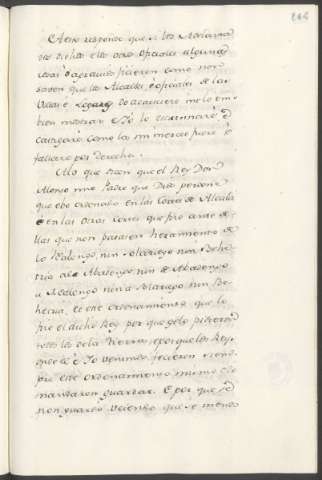 A esto respondo que si los Merinos
los dichos e los otros oficiales algunas
cosas o agravios ficieren como non
deven que los Alcalles e oficiales de las
Villas e Logares do acaeciere me lo em-
bien mostrar e Yo lo escarmentaré e
castigaré como la mi merced fuere e
fallare por derecho.
A lo que dicen que el Rey Don
Alonso mio Padre que Dios perdone
que obo ordenado en las Cortes de Alcalá
é en las otras Cortes que fizo ante de-
llas que non pasasen heredamiento de
lo Realengo nin Solariego nin Behe-
tria a lo Abadengo nin de Abadengo
a Realengo nin a Solariego nin Be-
hetria, e este ordenamiento que lo
fizo el dicho Rey por que gelo pidieron
todos los de la tierra e porque los Reyes
onde el é Yo venimos ficieron siem-
pre este ordenamiento mismo e lo
mandaron guardar. E por que se
non guardó diciendo que se menos